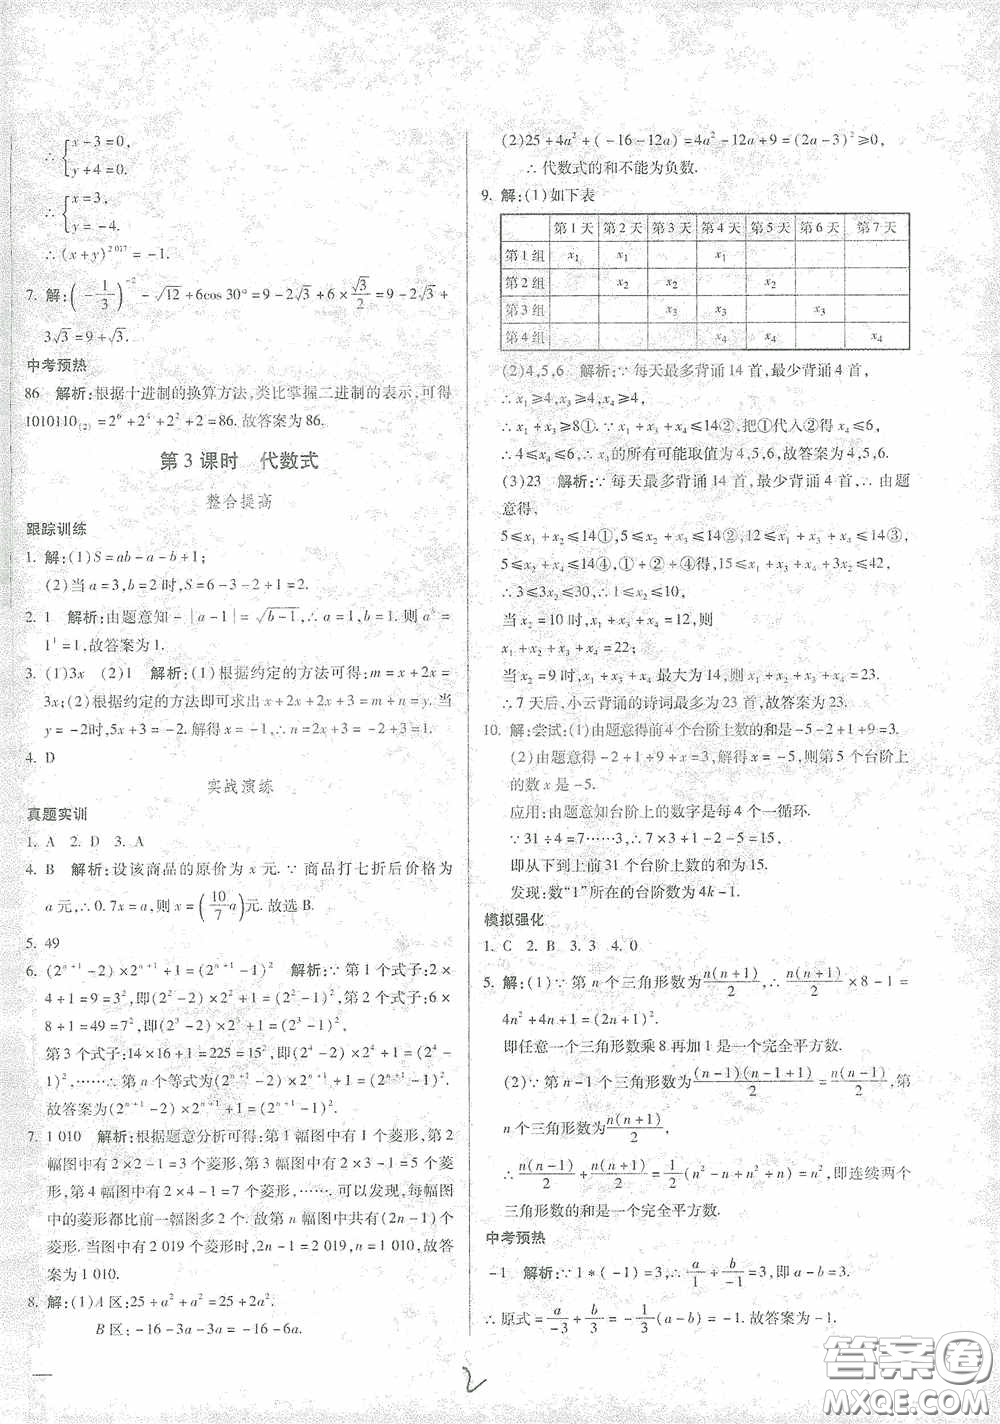 ∴ {x-3=0,
y+4=0.
∴ {x=3,
y=-4.
∴ (x+y)^2 017=-1.
7. 解:(-1/3)^-2-√12+6cos 30°=9-2√3+6×√3/2=9-2√3+
3√3=9+√3.
中考预热
86 解析:根据十进制的换算方法,类比掌握二进制的表示,可得
1010110(2)=2^6+2^4+2^2+2=86.故答案为86.
第3课时 代数式
整合提高
跟踪训练
1. 解:(1)S=ab-a-b+1;
(2)当a=3,b=2时,S=6-3-2+1=2.
2. 1 解析:由题意知-|a-1|=√b-1,∴a=1,b=1.则a^b=
1^1=1,故答案为1.
3. (1)3x (2)1 解析:(1)根据约定的方法可得:m=x+2x=
3x;(2)根据约定的方法即可求出x+2x+2x+3=m+n=y.当
y=-2时,5x+3=-2.解得x=-1.∴n=2x+3=-2+3=1.
4. D
实战演练
真题实训
1. A 2. D 3. A
4. B 解析:设该商品的原价为x元.∵商品打七折后价格为
a元,∴0.7x=a,则x=(10/7a)元.故选B.
5. 49
6. (2^n+1-2)×2^n+1+1=(2^n+1-1)^2 解析:∵第1个式子:2×
4+1=9=3^2,即(2^2-2)×2^2+1=(2^2-1)^2,第2个式子:6×
8+1=49=7^2,即(2^3-2)×2^3+1=(2^3-1)^2,
第3个式子:14×16+1=225=15^2,即(2^4-2)×2^4+1=(2^4-
1)^2,……∴第n个等式为(2^n+1-2)×2^n+1+1=(2^n+1-1)^2.
故答案为(2^n+1-2)×2^n+1+1=(2^n+1-1)^2.
7. 1 010 解析:根据题意分析可得:第1幅图中有1个菱形,第2
幅图中有2×2-1=3个菱形,第3幅图中有2×3-1=5个菱
形,第4幅图中有2×4-1=7个菱形,……可以发现,每幅图
中的菱形都比前一幅图多2个.故第n幅图中共有(2n-1)个
菱形.当图中有2 019个菱形时,2n-1=2 019,n=1 010,故答
案为1 010.
8. 解:(1)A区:25+a^2+a^2=25+2a^2.
B区:-16-3a-3a=-16-6a.
(2)25+4a^2+(-16-12a)=4a^2-12a+9=(2a-3)^2≥0,
∴代数式的和不能为负数.
9. 解:(1)如下表
第1天 第2天 第3天 第4天 第5天 第6天 第7天
第1组 x1 x1 x1
第2组 x2 x2 x2
第3组 x3 x3 x3
第4组 x4 x4 x4
(2)4,5,6 解析:∵每天最多背诵14首,最少背诵4首,
∴x1≥4,x3≥4,x4≥4,
∴x1+x3≥8①.∵x1+x3+x4≤14②,把①代入②得x4≤6,
∴4≤x4≤6,∴x4的所有可能取值为4,5,6,故答案为4,5,6.
(3)23 解析:∵每天最多背诵14首,最少背诵4首,∴由题
意得,
5≤x1+x2≤14①,5≤x2+x3≤14②,12≤x1+x3+x4≤14③,
5≤x2+x4≤14④,①+②+④得,15≤x1+3x2+x3+x4≤42,
∴3≤3x2≤30,∴1≤x2≤10,
当x2=10时,x1+x3+x4=12,则
x1+x2+x3+x4=22;
当x2=9时,x1+x3+x4最大为14,则x1+x2+x3+x4=23.
∴7天后,小云背诵的诗词最多为23首,故答案为23.
10. 解:尝试:(1)由题意得前4个台阶上数的和是-5-2+1+9=3;
(2)由题意得-2+1+9+x=3,解得x=-5,则第5个台阶上
的数x是-5.
应用:由题意知台阶上的数字是每4个一循环.
∵31÷4=7……3,∴7×3+1-2-5=15,
即从下到上前31个台阶上数的和为15.
发现:数“1”所在的台阶数为4k-1.
模拟强化
1. C 2. B 3. 3 4. 0
5. 解:(1)∵第n个三角形数为n(n+1)/2,∴n(n+1)/2×8+1=
4n^2+4n+1=(2n+1)^2.
即任意一个三角形数乘8再加1是一个完全平方数.
(2)∵第n-1个三角形数为(n-1)(n-1+1)/2=n(n-1)/2,第
n个三角形数为n(n+1)/2,
∴n(n-1)/2+n(n+1)/2=1/2(n^2-n+n^2+n)=n^2,即连续两个
三角形数的和是一个完全平方数.
中考预热
-1 解析:∵1*(-1)=3,∴a/1+b/-1=3,即a-b=3.
∴原式=a/-3+b/3=-1/3(a-b)=-1.故答案为-1.
2
答案圈
MXQE.COM